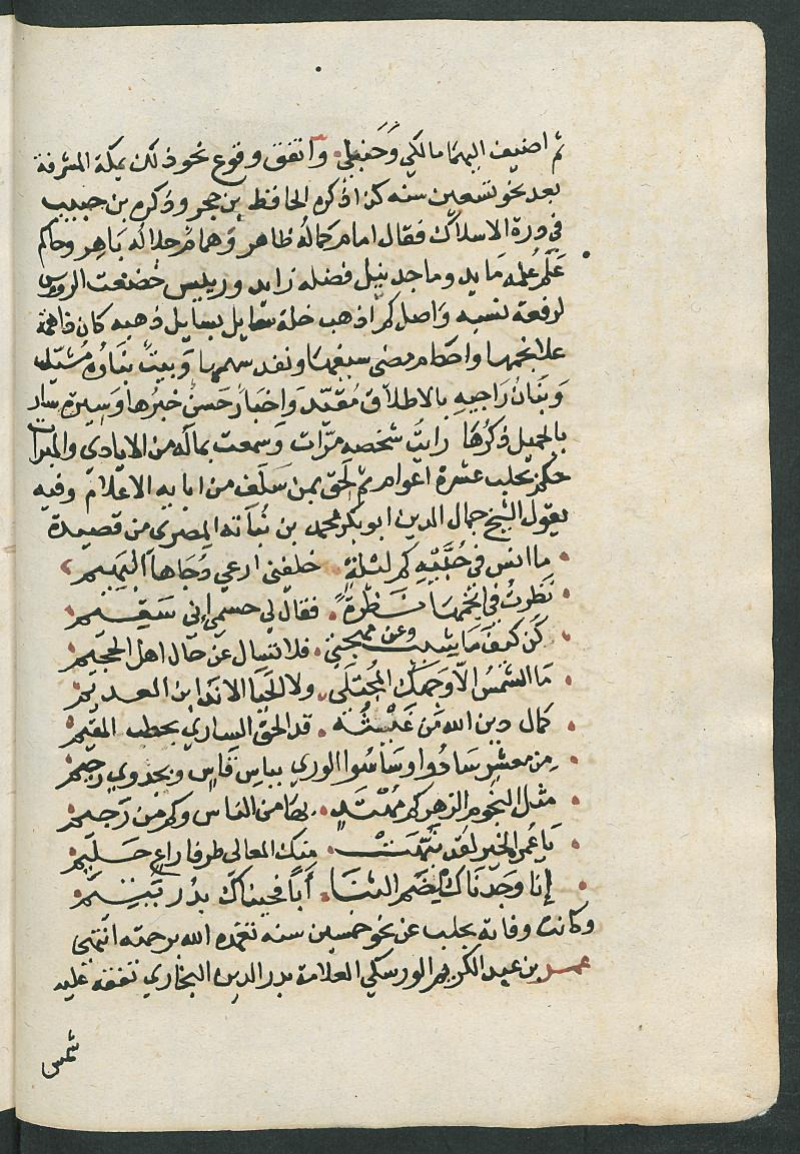 ثم اضيف اليهما مالكي وحنبلي واتفق وقوع نحو ذلك بمكة المشرفة
بعد نحو تسعين سنه كذا ذكره الحافظ بن حجر وذكره بن حبيب
في درة الاسلاك فقال امام كماله ظاهر وهمام جلاله باهر وحاكم
علم علمه مايد وماجد نيل فضله زايد ورييس خضعت الروس
لرفعة نسبه واصل كم اذهب خلة سايل بسايل ذهبه كان
علا نجمها واحكام مضى سيفها ونفد سهمها وبيت بناوه مشيد
وبنان راجيه بالاطلاق مقيد واخبار حسن خبرها وسيرة سار
بالجميل ذكرها رايت شخصه مرات وسمعت بماله من الايادي والمبرات
حكم بحلب عشرة اعوام ثم لحق بمن سلف من ابايه الاعلام وفيه
يقول الشيخ جمال الدين ابو بكر محمد بن نباته المصري من قصيدة
ما انس في حبيه كم ليلة خلفني ارعي دجاها البهيم
نظرت في انجمها نظرة فقال لي جسمي اني سقيم
كن كيف ما شيت وعن مهجتي فلا تسال عن حال اهل الجحيم
ما الشمس الا وجهك المجتلى ولا الحيا الا ندا ابن العديم
كمال دين الله من غيثه قد الحق الساري بحطب المقيم
من معشر سادوا وساسوا الوري بباس قاس وبجدوي رحيم
مثل النجوم الزهر كم مهتد بها من الناس وكم من رجيم
يا عمر الخير لقد نبهت منك المعالى طرفا راع حليم
انا وجدناك لنظم الثنا ابا فجيناك بدر يتيم
وكانت وفاته بحلب عن نحو خمسين سنه تغمده الله برحمته انتهى
عمر بن عبد الكريم الورسكي العلامة بدر الدين البخاري تفقه عليه
شمس